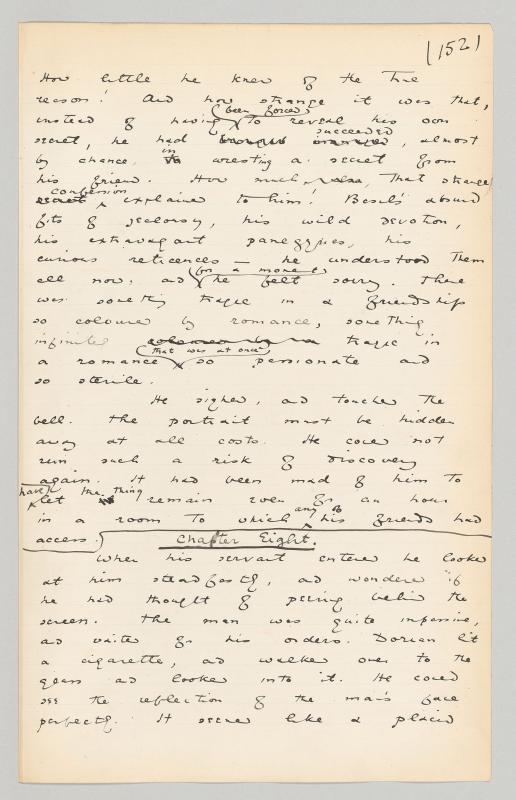 (152)
How little he knew of the true
reason! And how strange it was that,
instead of having been forced to reveal his own
secret, he had succeeded, almost
by chance, in wresting a secret from
his friend. How much that strange
confession explained to him! Basil's absurd
fits of jealousy, his wild devotion,
his extravagant panegyrics, his
curious reticences — he understood them
all now, and for a moment he felt sorry. There
was something tragic in a friendship
so coloured by romance, something
infinitely tragic in
a romance that was at once so passionate and
so sterile.
He sighed, and touched the
bell. The portrait must be hidden
away at all costs. He could not
run such a risk of discovery
again. It had been mad of him to
have let the thing remain even for an hour
in a room to which any of his friends had
access.
Chapter Eight.
When his servant entered he looked
at him steadfastly, and wondered if
he had thought of peering behind the
screen. The man was quite impassive,
and waited for his orders. Dorian lit
a cigarette, and walked over to the
glass and looked into it. He could
see the reflection of the man's face
perfectly. It seemed like a placid